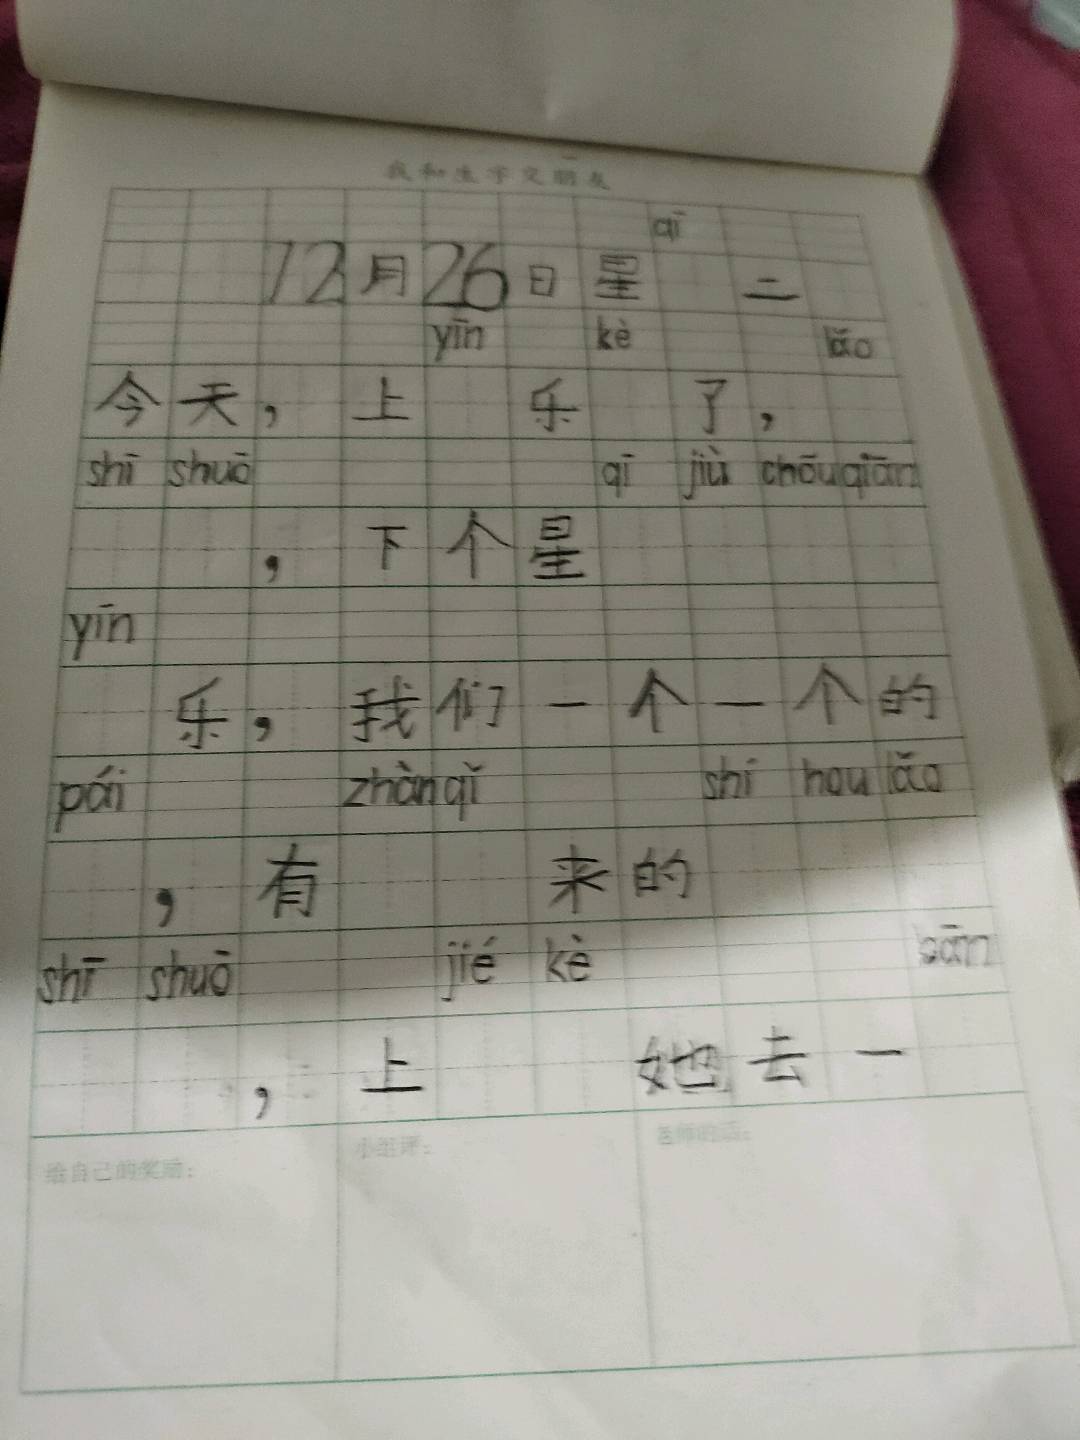 我和生字交朋友
qī
12月26日星 二
yīn kè lǎo
今天，上 乐 了，
shī shuō qī jiù chōu qiān
，下个星
yīn
乐，我们一个一个的
pái zhàn qǐ shí hou lǎo
，有 来的
shī shuō jié kè bān
，上 她去一
给自己的奖励： 小组评： 老师的话：